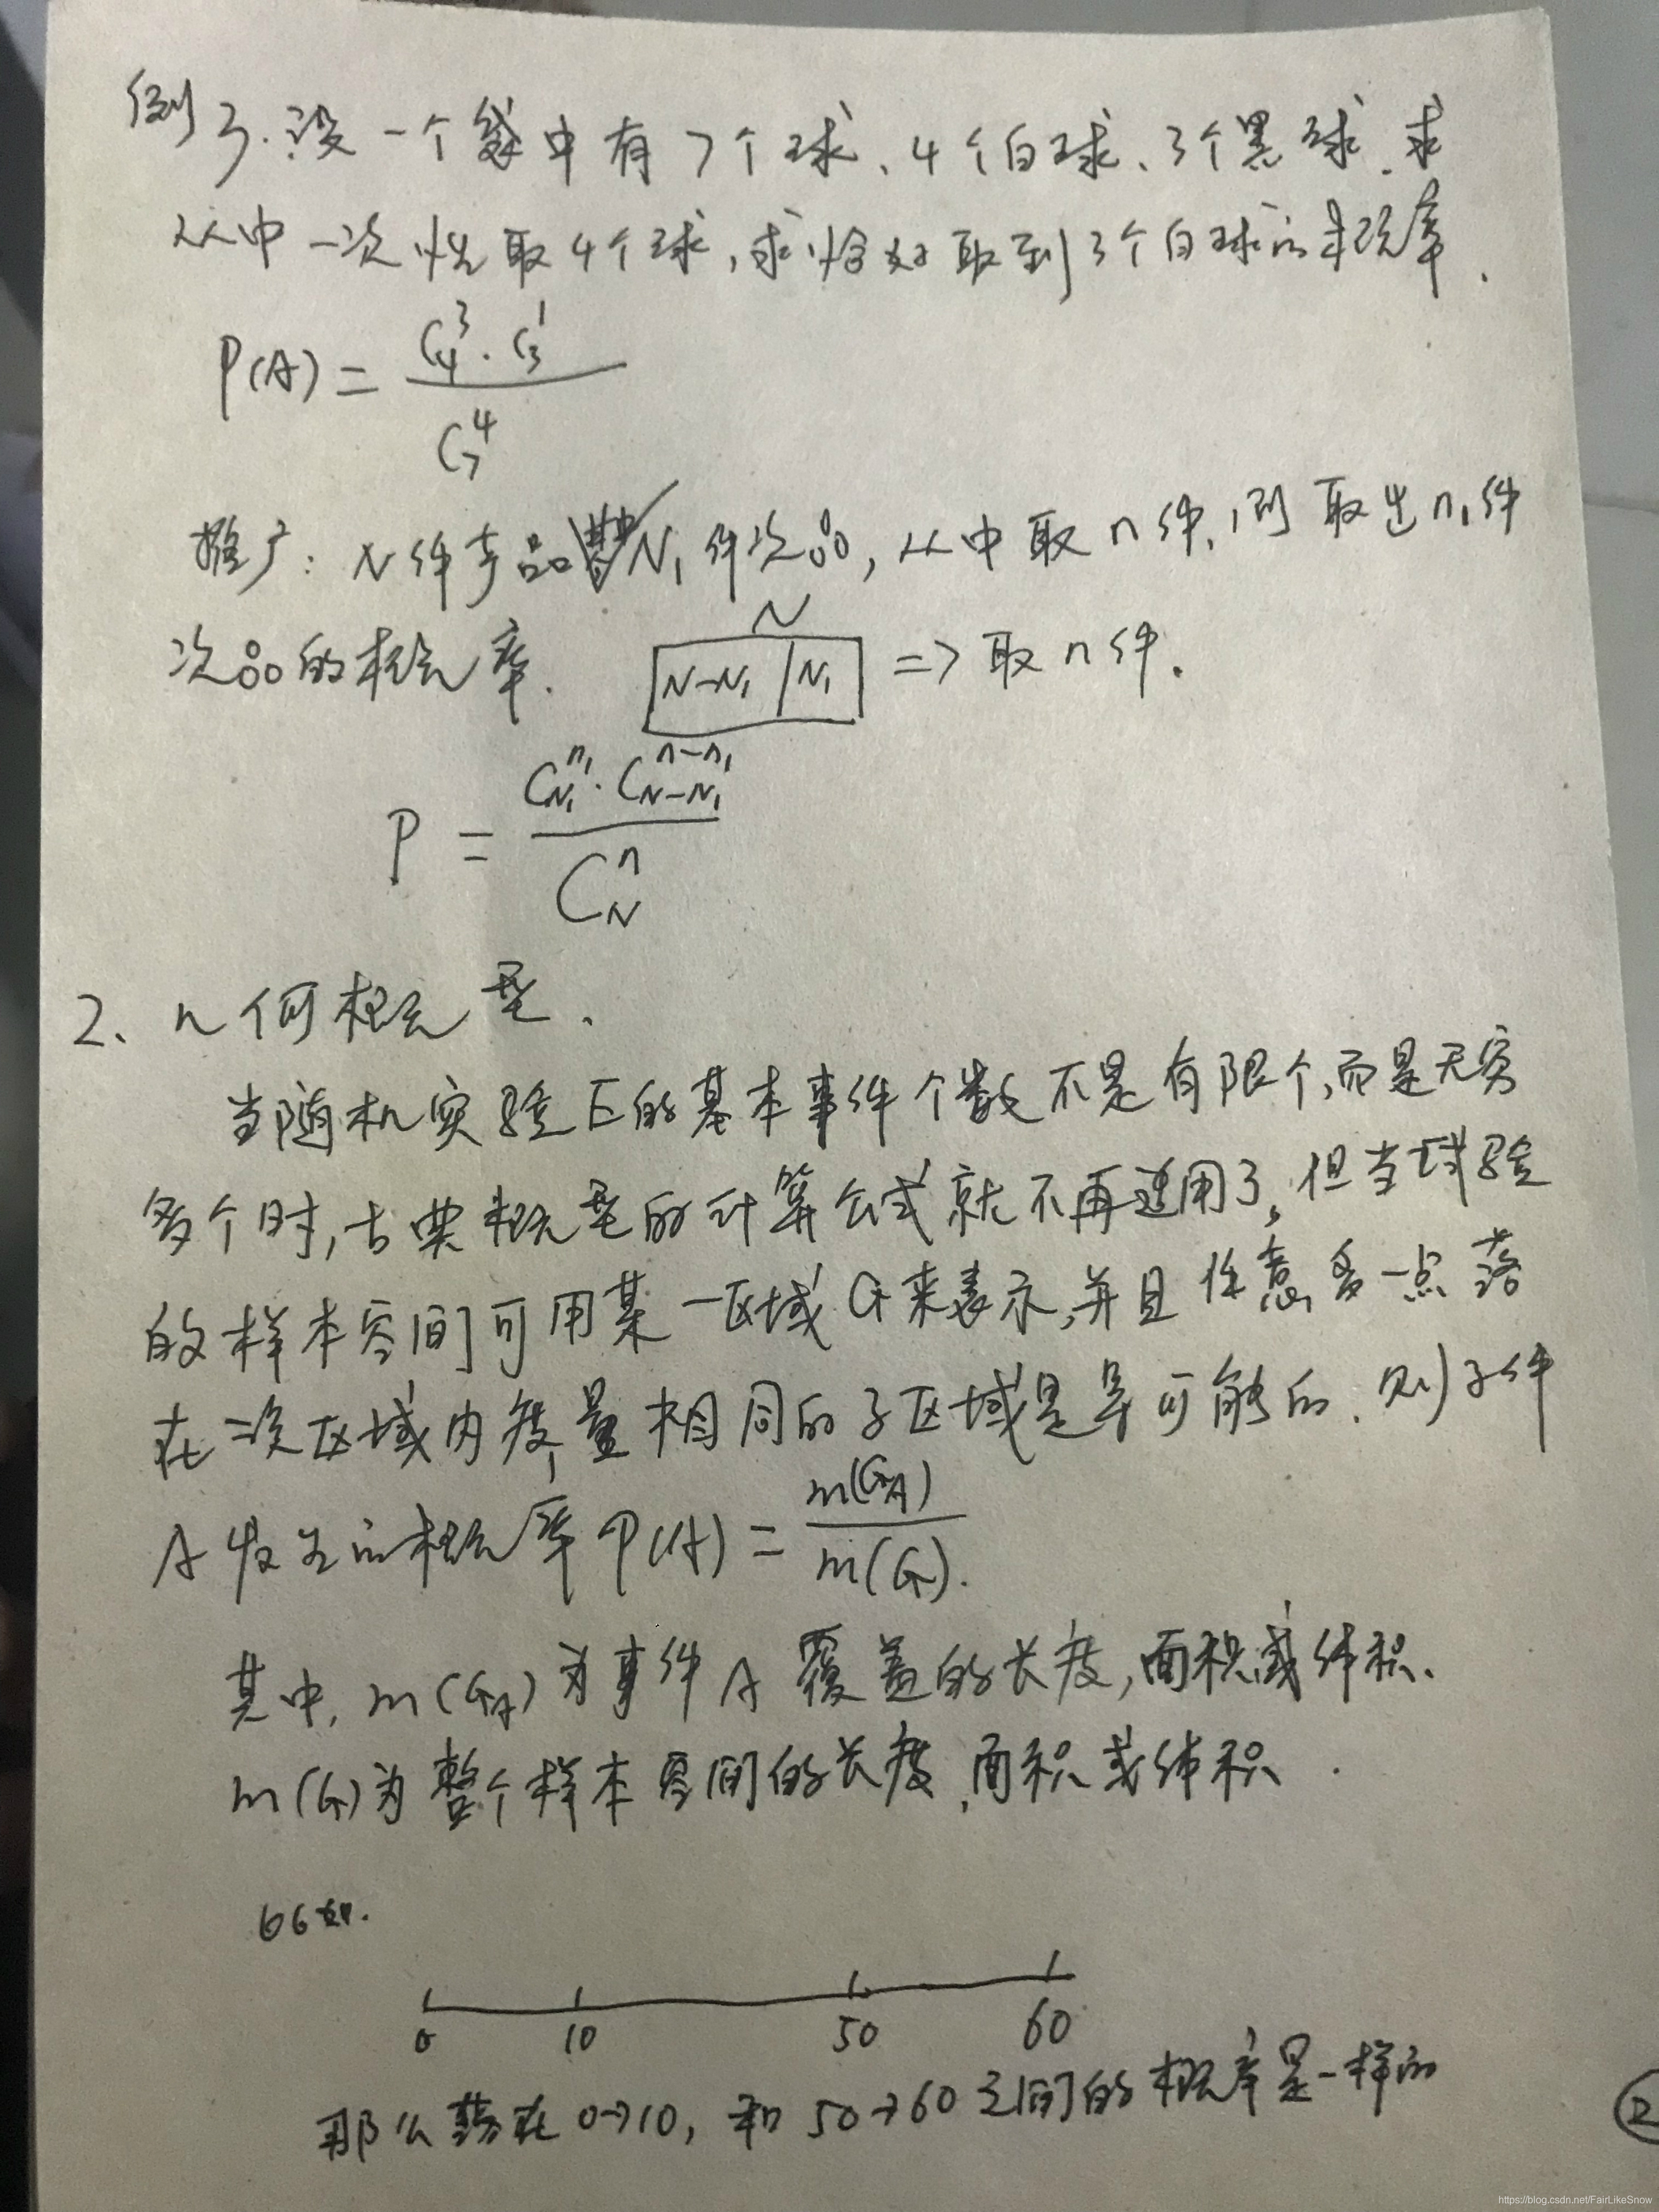 例3.设一个袋中有7个球、4个白球、3个黑球.求
从中一次性取4个球,求恰好取到3个白球的概率.
P(A) = C₄³·C₃¹ / C₇⁴
推广: N件产品 N₁件次品,从中取n件,则取出n₁件
次品的概率.
N
N-N₁ | N₁ => 取n件.
P = C_{N₁}^{n₁}·C_{N-N₁}^{n-n₁} / C_N^n
2、几何概型.
当随机实验E的基本事件个数不是有限个,而是无穷
多个时,古典概型的计算公式就不再适用了,但当试验
的样本空间可用某一区域G来表示,并且任意一点落
在区域内度量相同的子区域是等可能的.则事件
A发生的概率P(A) = m(G_A) / m(G).
其中,m(G_A)为事件A覆盖的长度,面积或体积.
m(G)为整个样本空间的长度,面积或体积.
比如.
0 10 50 60
那么落在0→10,和50→60之间的概率是一样的
2
https://blog.csdn.net/FairLikeSnow